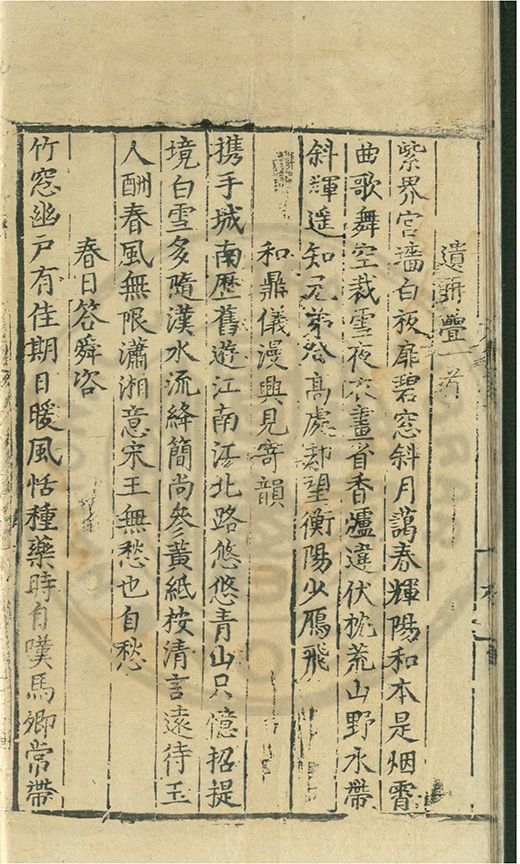 遺 疊一首
紫界宮墻白夜扉碧窓斜月藹春輝陽和本是烟霄
曲歌舞空裁雪夜衣畫省香爐違伏枕荒山野水帶
斜輝遥知兄弟登高處都望衡陽少鴈飛
和鼎儀漫興見寄韻
携手城南歷舊遊江南江北路悠悠青山只億招提
境白雪多隨漢水流絳簡尚參黃紙桉清言遠待玉
人酬春風無限瀟湘意宋王無愁也自愁
春日答舜咨
竹窓幽戶有佳期日暖風恬種藥時自嘆馬卿常帶